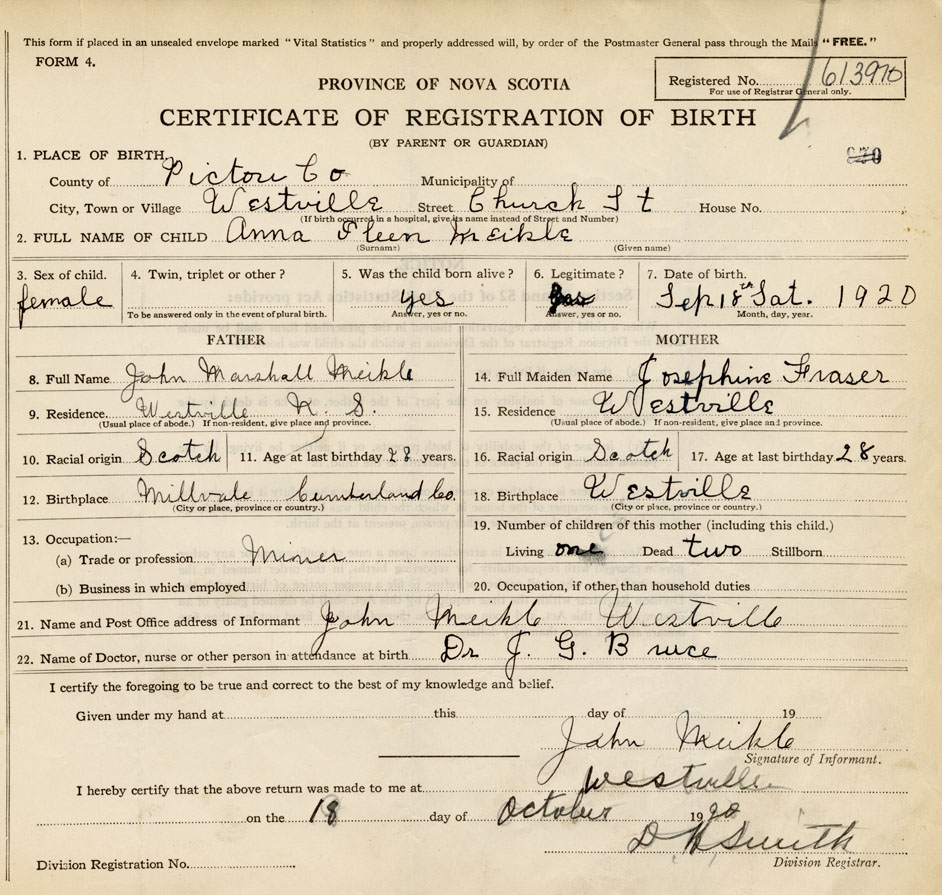 This form if placed in an unsealed envelope marked "Vital Statistics" and properly addressed will, by order of the Postmaster General pass through the Mails "FREE."
FORM 4.
PROVINCE OF NOVA SCOTIA
Registered No. 613970
For use of Registrar General only.
CERTIFICATE OF REGISTRATION OF BIRTH
(BY PARENT OR GUARDIAN)
1. PLACE OF BIRTH,
County of Pictou Co Municipality of
City, Town or Village Westville Street Church St House No.
(If birth occurred in a hospital, give its name instead of Street and Number)
2. FULL NAME OF CHILD Anna Meikle
(Surname) (Given name)
3. Sex of child. 4. Twin, triplet or other? 5. Was the child born alive? 6. Legitimate? 7. Date of birth.
female yes yes Sep 18th Sat. 1920
To be answered only in the event of plural birth. Answer, yes or no. Answer, yes or no. Month, day, year.
FATHER MOTHER
8. Full Name John Marshall Meikle 14. Full Maiden Name Josephine Fraser
9. Residence. Westville N. S. 15. Residence Westville
(Usual place of abode.) If non-resident, give place and province. (Usual place of abode.) If non-resident, give place and province.
10. Racial origin Scotch 11. Age at last birthday 28 years. 16. Racial origin Scotch 17. Age at last birthday 28 years.
12. Birthplace Millvale Cumberland Co. 18. Birthplace Westville
(City or place, province or country.) (City or place, province or country.)
13. Occupation:— 19. Number of children of this mother (including this child.)
(a) Trade or profession Miner Living one Dead two Stillborn
(b) Business in which employed 20. Occupation, if other than household duties
21. Name and Post Office address of Informant John Meikle Westville
22. Name of Doctor, nurse or other person in attendance at birth Dr J. G. Bruce
I certify the foregoing to be true and correct to the best of my knowledge and belief.
Given under my hand at this day of 19
John Meikle
Signature of Informant.
I hereby certify that the above return was made to me at Westville
on the 18 day of October 1920
D Smith
Division Registrar.
Division Registration No.